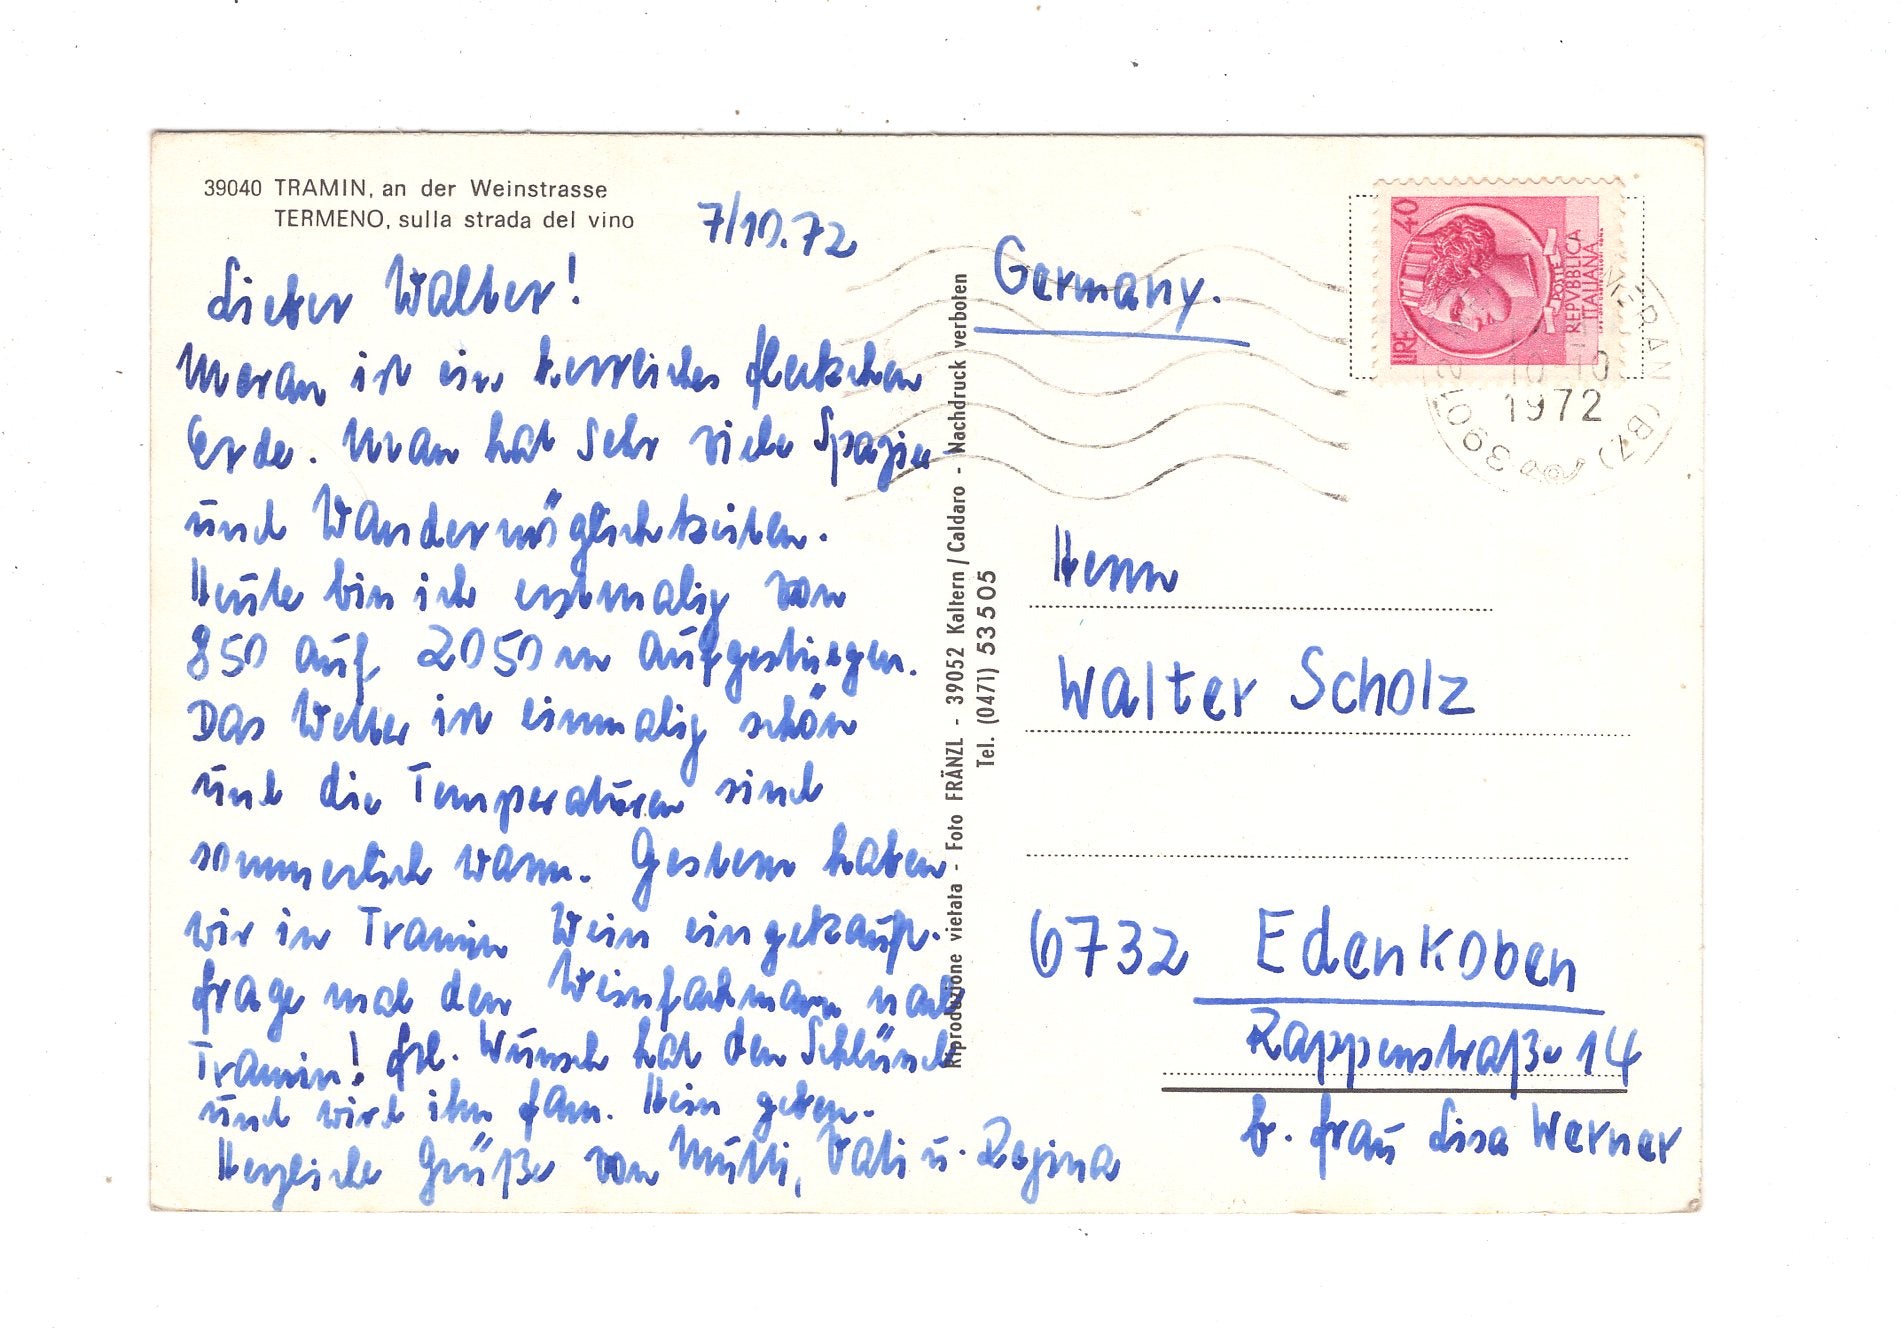 39040 TRAMIN, an der Weinstrasse
TERMENO, sulla strada del vino
7/10.72
Lieber Walter!
Meran ist ein herrliches Fleckchen
Erde. Man hat sehr viele Spazier-
und Wandermöglichkeiten.
Heute bin ich erstmalig von
850 auf 2050 m aufgestiegen.
Das Wetter ist einmalig schön
und die Temperaturen sind
sommerlich warm. Gestern haben
wir in Tramin Wein eingekauft.
Frage mal den Weinfachmann nach
Tramin! Frl. Wünsch hat den Schlüssel
und wird ihn Fam. Hein geben.
Herzliche Grüße von Mutti, Vati u. Regina
Riproduzione vietata - Foto FRÄNZL - 39052 Kaltern / Caldaro - Nachdruck verboten
Tel. (0471) 53505
Germany.
LIRE 40
POSTE
REPVBBLICA
ITALIANA
MERAN (BZ)
39012
1972
Herrn
Walter Scholz
6732 Edenkoben
Rappenstraße 14
b. Frau Lisa Werner